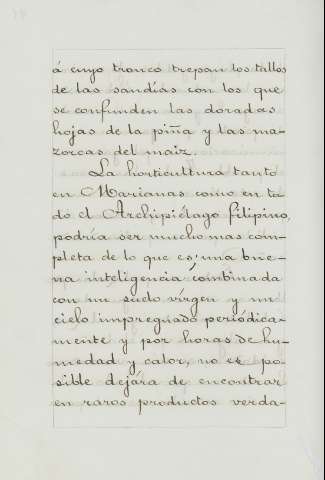 á cuyo tronco trepan los tallos
de las sandías con los que
se confunden las doradas
hojas de la piña y las ma-
zorcas del maiz.
La horticultura tanto
en Marianas como en to
do el Archipiélago filipino,
podría ser mucho mas com-
pleta de lo que es; una bue-
na inteligencia combinada
con un suelo vírgen y un
cielo impregnado periódica-
mente y por horas de hu-
medad y calor, no es po-
sible dejára de encontrar
en raros productos verda-